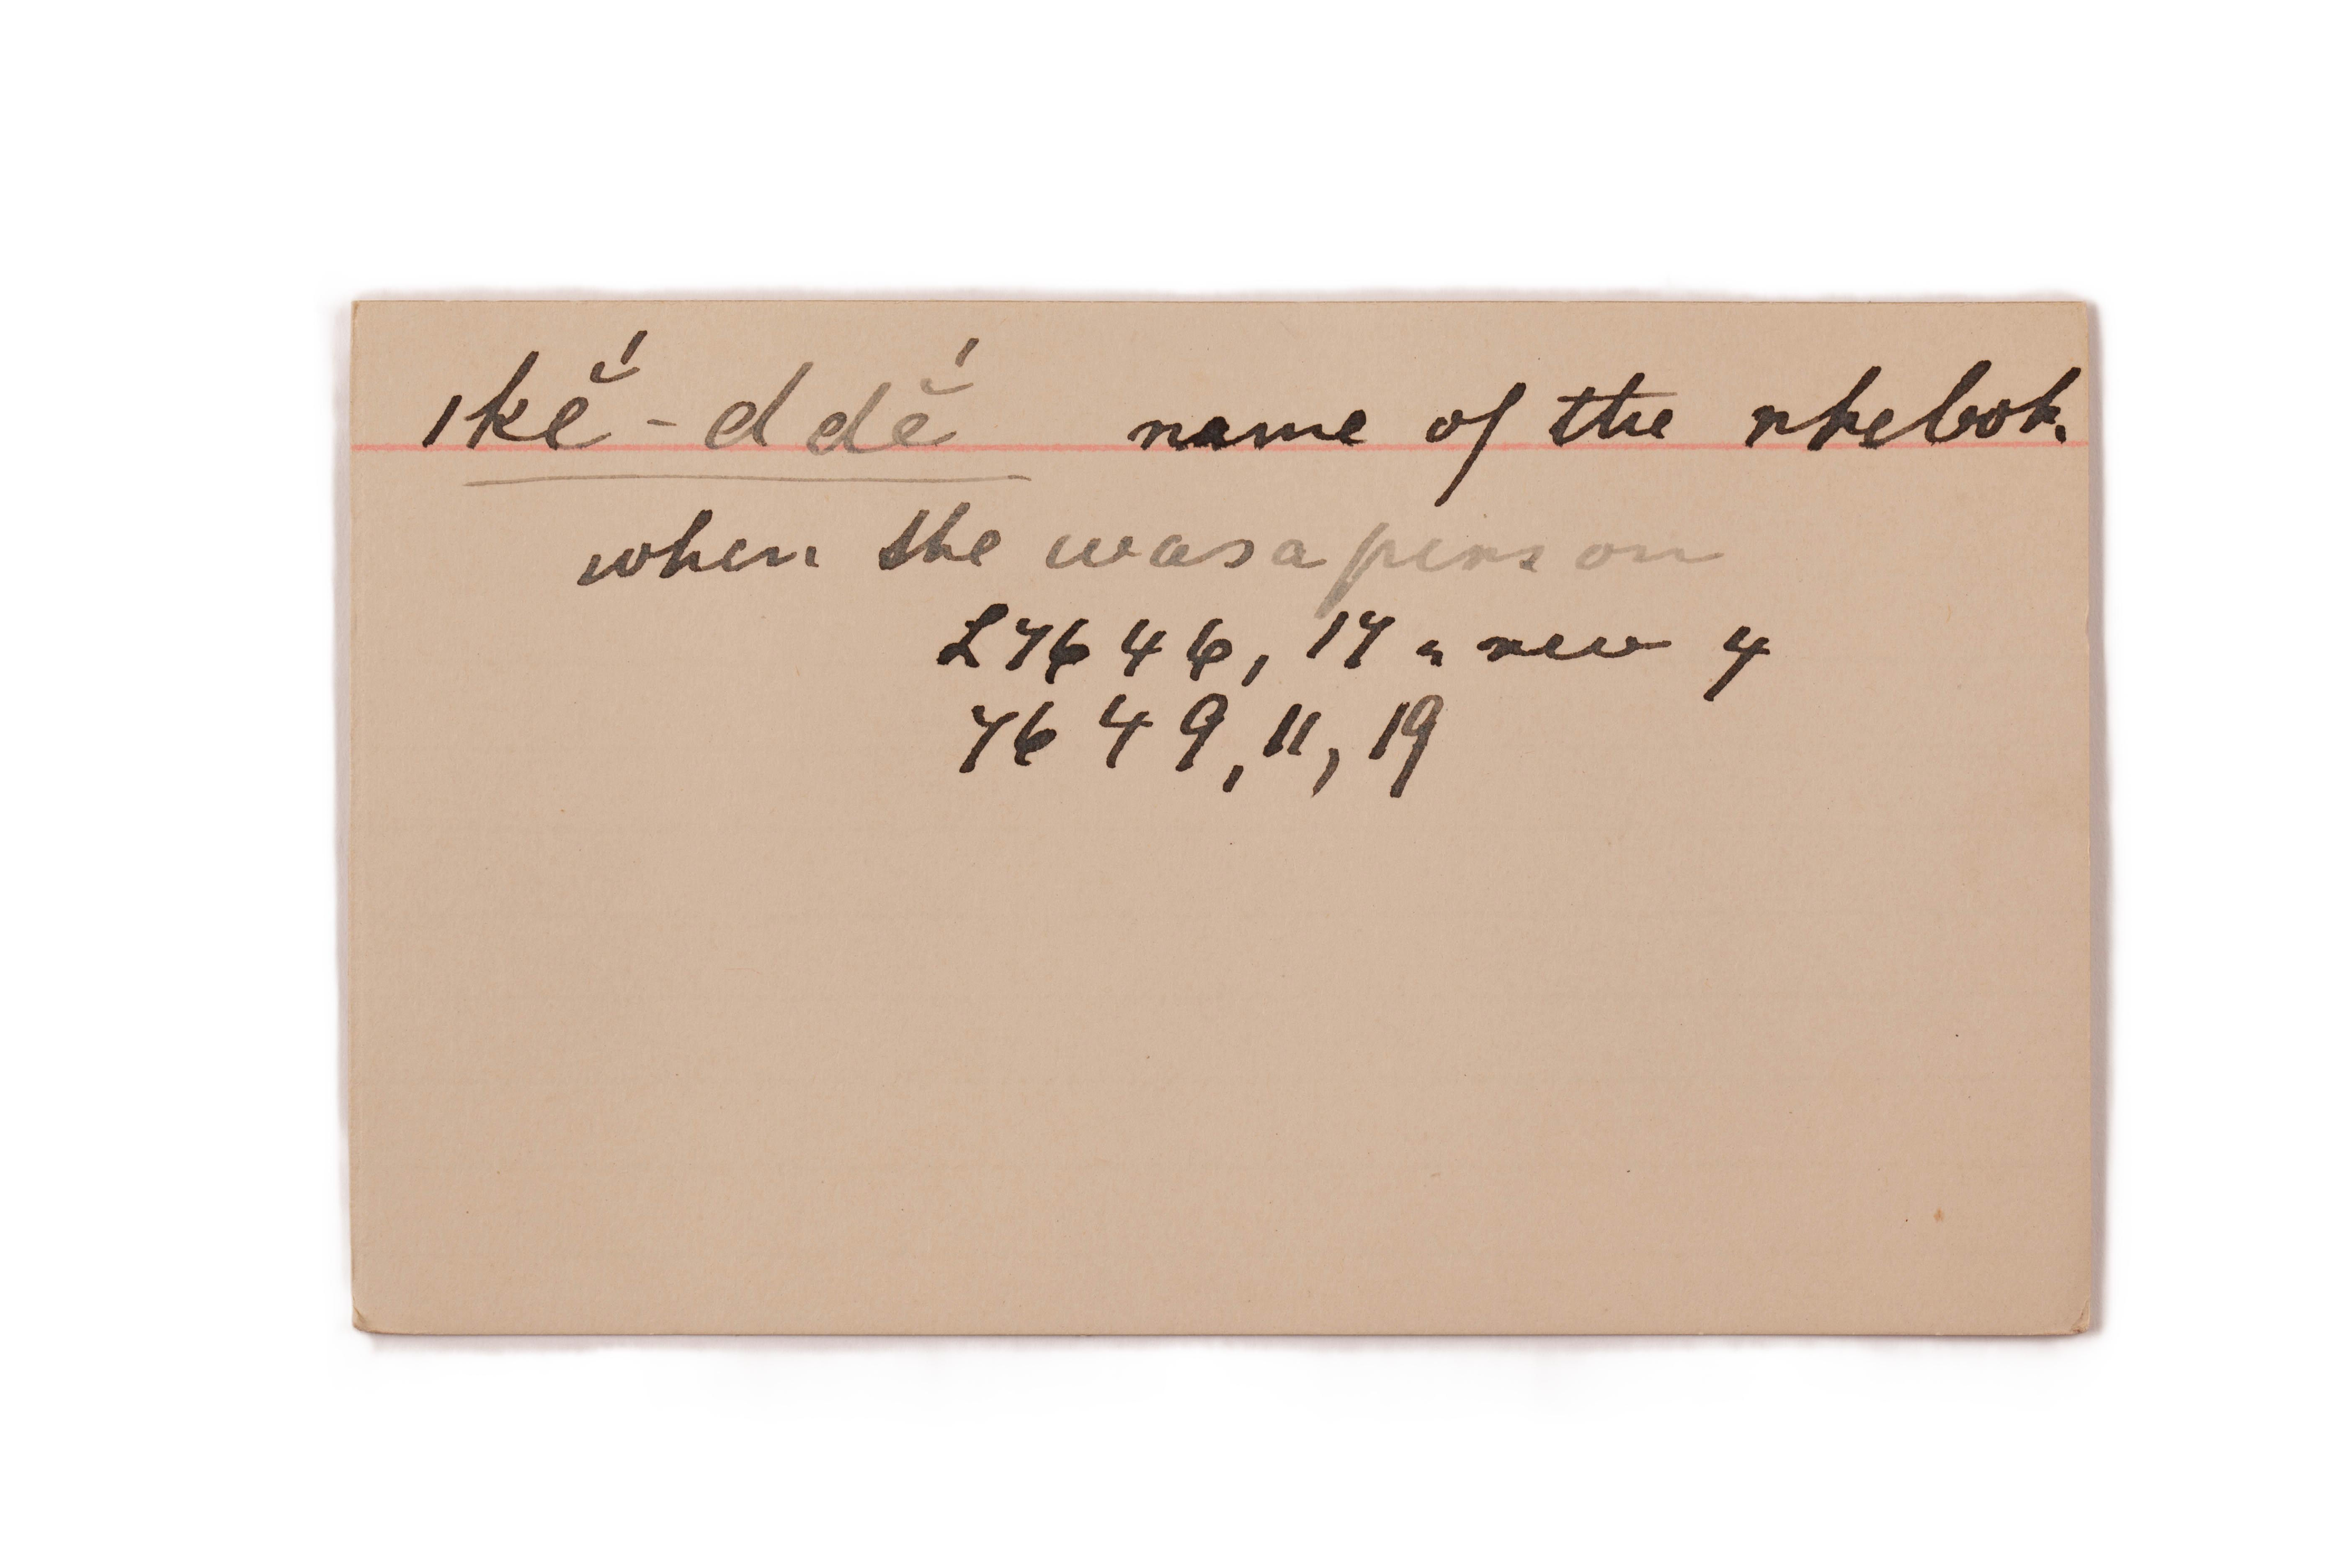 ǀkĕ́-ddĕ́ name of the rhebok.
when she was a person
L 7646, 17 = new 4
7649, 11, 19